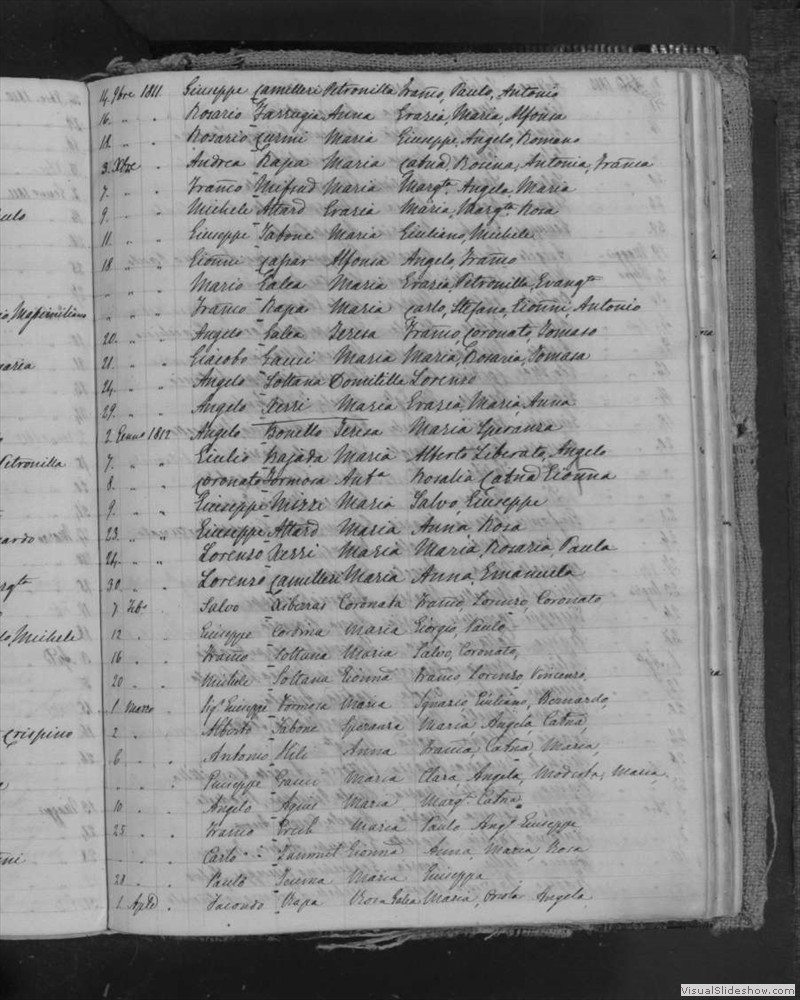 14. 9bre 1811. Giuseppe Camilleri Petronilla Franco, Paulo, Antonio
16. " " Rosario Farrugia Anna Erasia, Maria, Alfonsa
18. " " Rosario Curmi Maria Giuseppe, Angelo, Romano
3. Xbre . Andrea Rapa Maria Catna, Rosina, Antonia, Franca
7. " " Franco Meifrud Maria Margta, Angela, Maria
9. " " Michele Attard Erasia Maria, Margta, Rosa
11. " " Giuseppe Tabone Maria Giuliano, Michele
18 " " Gionni Capar Alfonsa Angelo, Franco
" " " Mario Galea Maria Erasia, Petronilla, Evangta
" " " Franco Rapa Maria Carlo, Stefano, Gionni, Antonio
20. " " Angelo Galea Teresa Franco, Coronato, Tomaso
21. " " Giacobo Gauci Maria Maria, Rosaria, Tomasa
24. " " Angelo Soltana Domitilla Lorenzo
29. " " Angelo Xerri Maria Erasia, Maria, Anna
2 Genno 1812 Angelo Bonello Teresa Maria Speranza
7. " " Giulio Bajada Maria Alberto Liberato, Angelo
8. " " Coronato Formosa Anta Rosalia Catna Gionna
9. " " Giuseppe Mizzi Maria Salvo, Giuseppe
23. " " Giuseppe Attard Maria Anna Rosa
24. " " Lorenzo Xerri Maria Maria, Rosaria, Paula
30. " " Lorenzo Camilleri Maria Anna, Emanuela
7 Febo Salvo Xiberras Coronata Franco, Lorenzo, Coronato
12 . . Giuseppe Cordina Maria Giorgio, Paulo
16 . . Franco Soltana Maria Salvo, Coronato,
20 . . Michele Soltana Gionna Franco Lorenzo Vincenzo,
1 Marzo . Sigr Giuseppe Formosa Maria Ignazio Giuliano, Bernardo,
2 . . Alberto Tabone Speranza Maria, Angela, Catna,
6 . . Antonio Anna Franca Catna, Maria,
. . . Giuseppe Gauci Maria Clara, Angela, Modesta, Maria,
10 . . Angelo Agius Maria Margta Catna
25 . . Franco Grech Maria Paulo Anglo Giuseppe
. . . Carlo Gionna Anna, Maria, Rosa
28 . . Paulo Maria Giuseppa
1 Aple . Facondo Rapa Rosa Galea Maria, Angela
Massimiliano
Petronilla
Michele
Crispino
VisualSlideshow.com